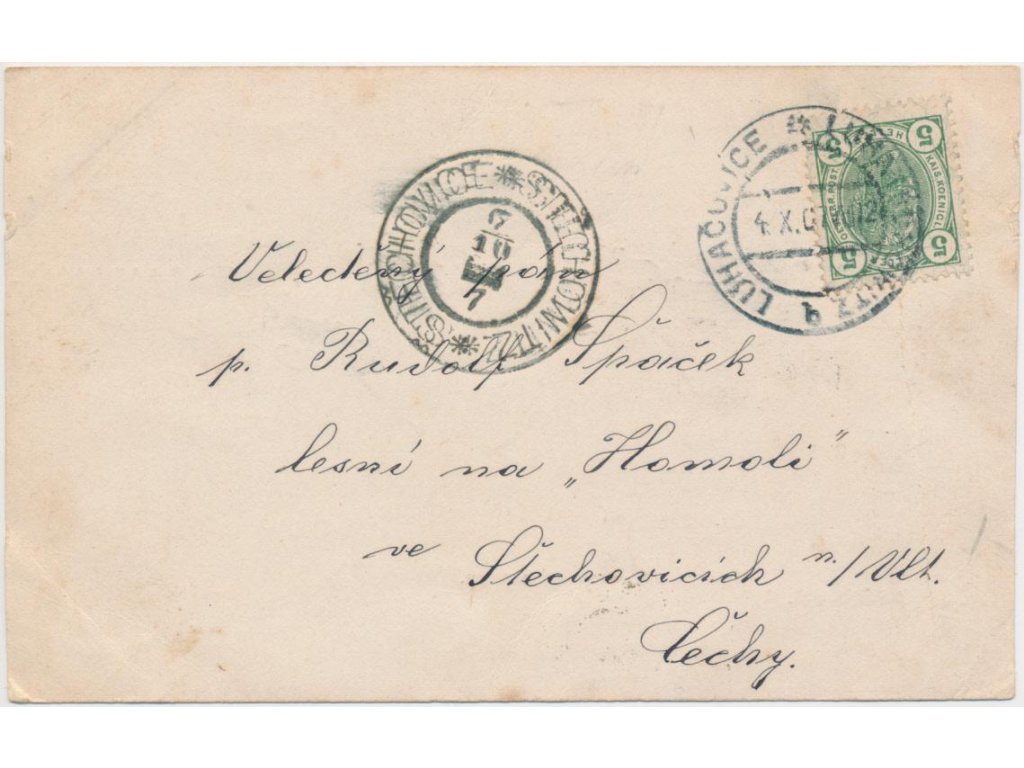 LUHAČOVICE
4.X.07
5 5
5 5
KAIS. KOENIGL.
OESTERR. POST.
ŠTĚCHOVICE * STECHOWITZ *
6
10
7
Velectěný pán
p. Rudolf Špaček
lesní na „Homoli"
ve Štechovicích n./Vlt.
Čechy.